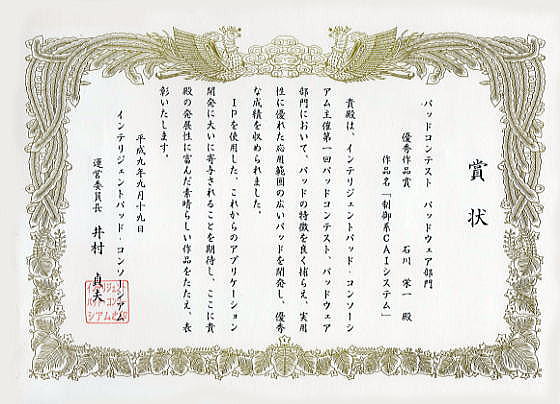 賞状
パッドコンテスト　パッドウェア部門
優秀作品賞　石川　栄一　殿
作品名「制御系CAIシステム」
貴殿は、インテリジェントパッド・コンソーシ
アム主催第一回パッドコンテスト、パッドウェア
部門において、パッドの特徴を良く捕らえ、実用
性に優れた応用範囲の広いパッドを開発し、優秀
な成績を収められました。
IPを使用した、これからのアプリケーション
開発に大いに寄与されることを期待し、ここに貴
殿の発展性に富んだ素晴らしい作品をたたえ、表
彰いたします。
平成九年九月十九日
インテリジェントパッド・コンソーシアム
運営委員長　井村　貞夫